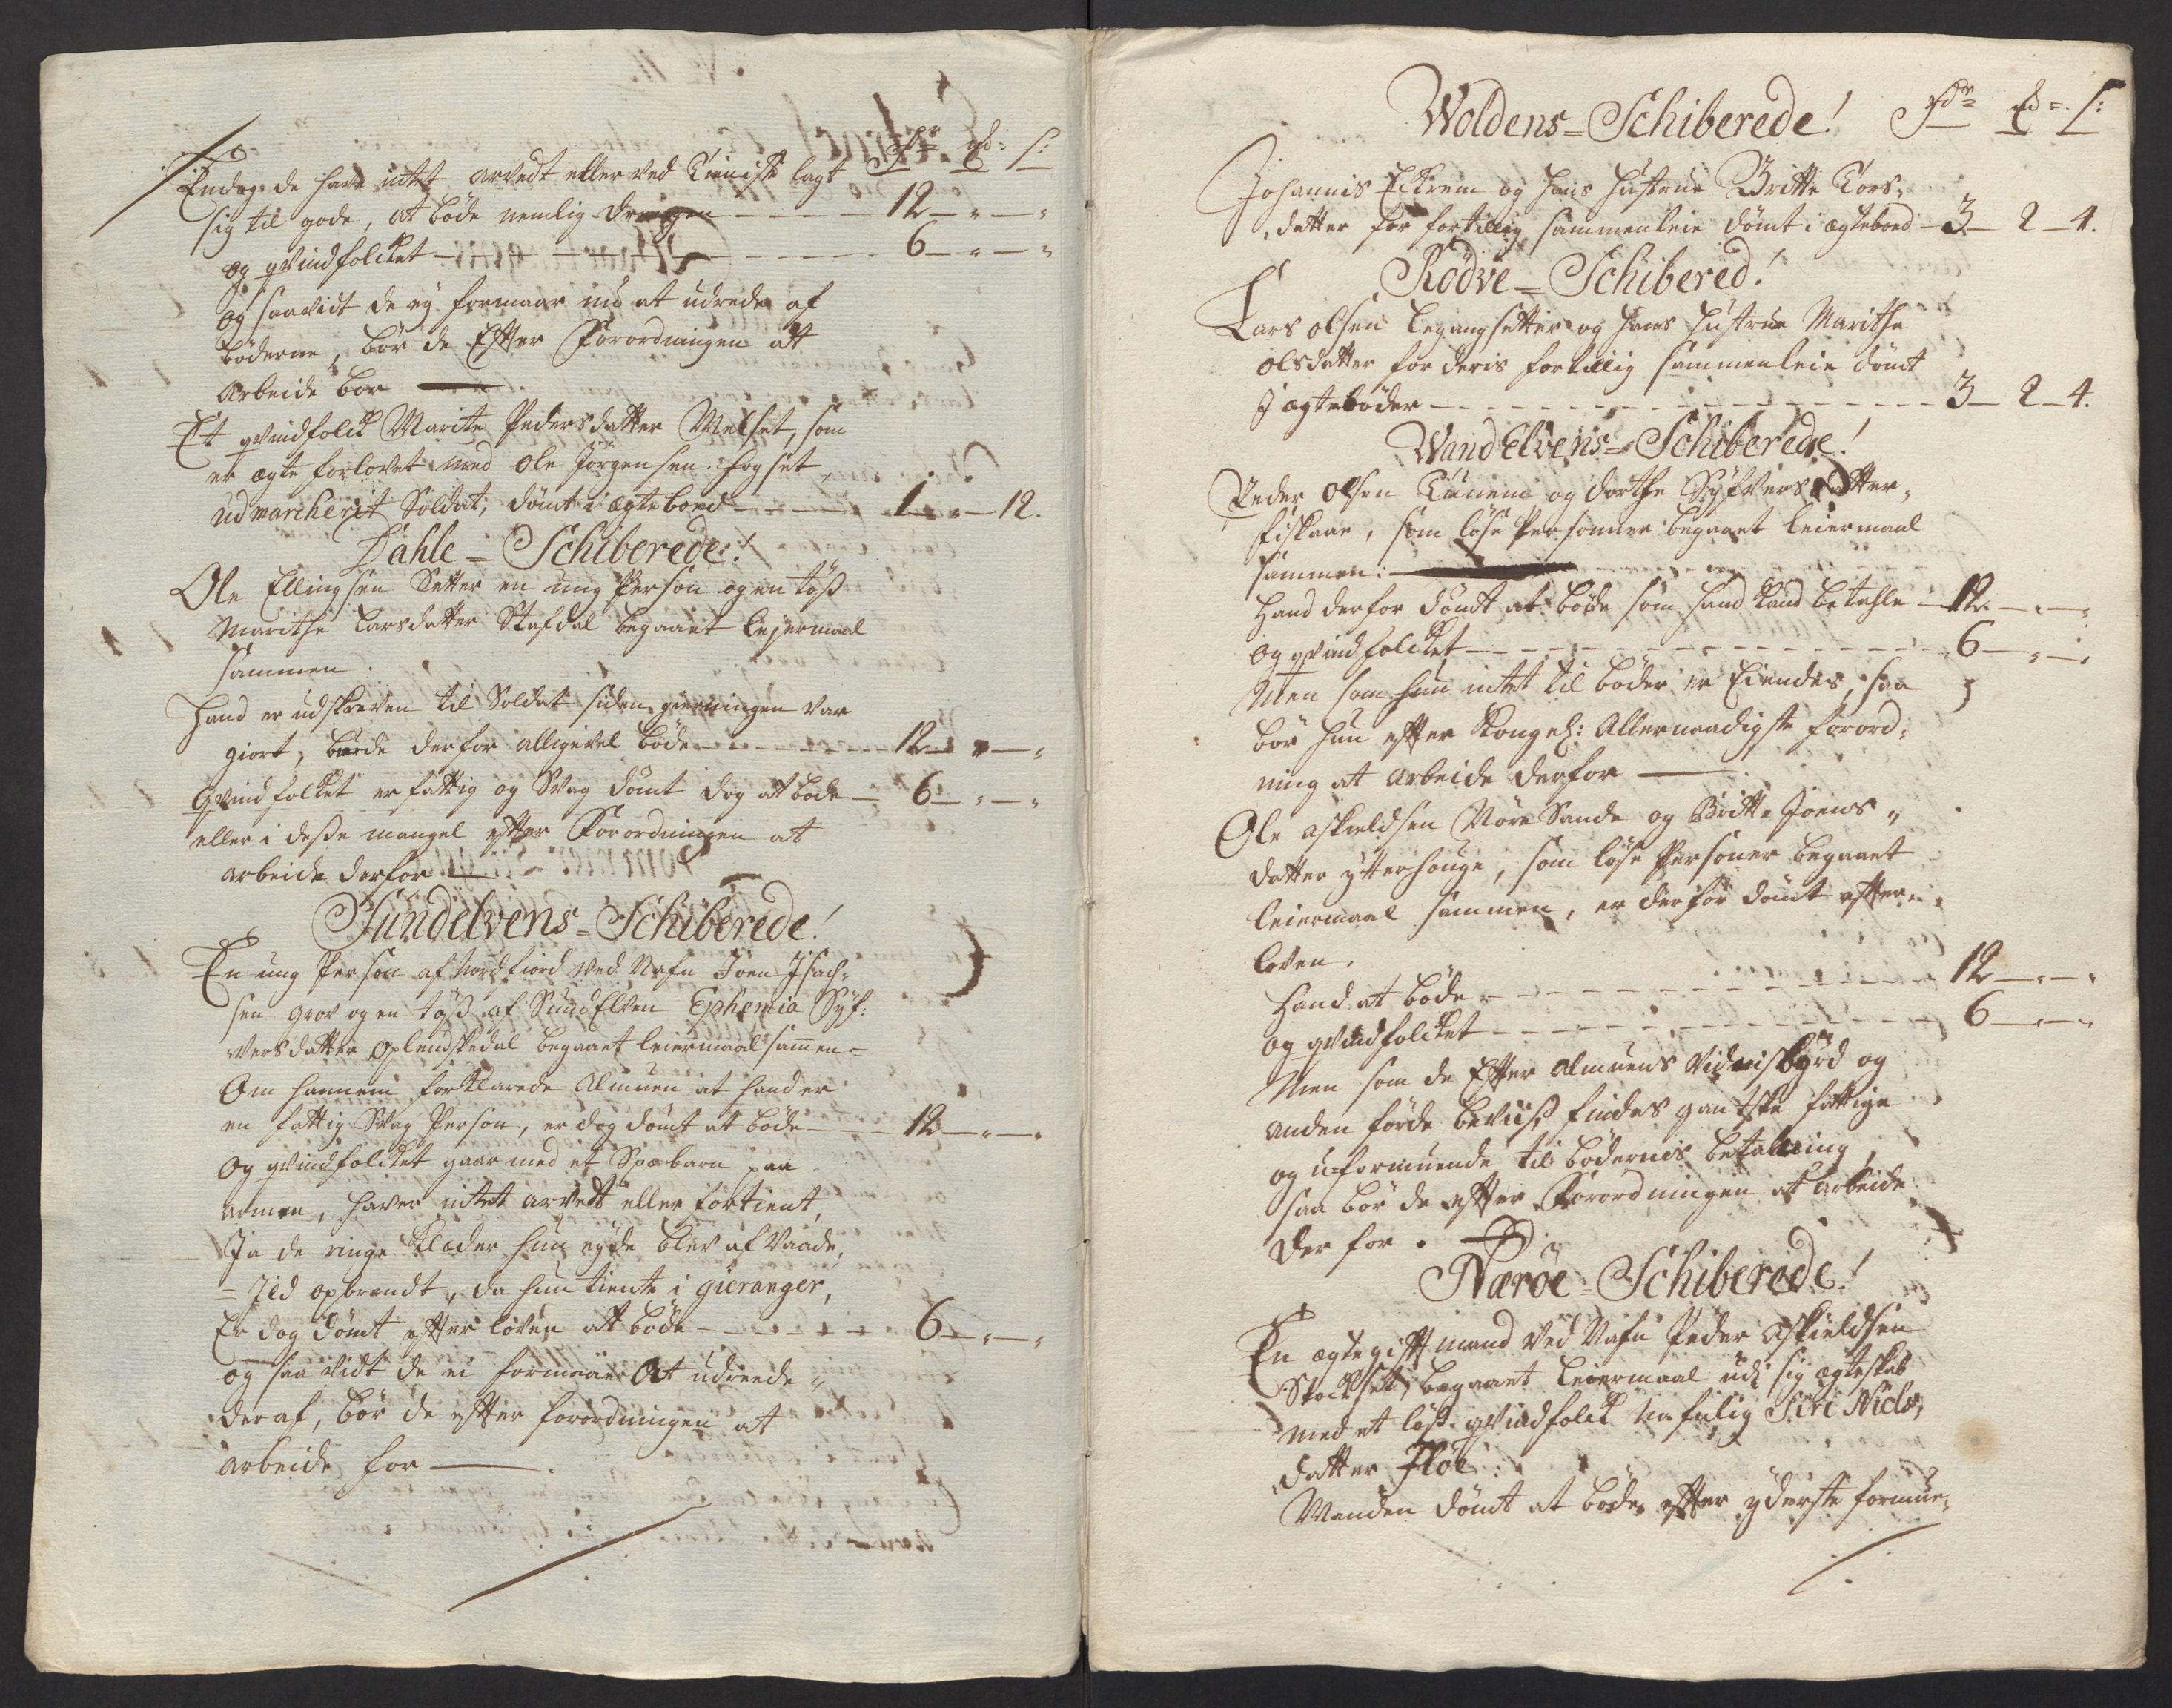 Endog de have intet arvedt eller ved Tieniste lagt
sig til gode, at böde nemlig drengen — 12 — „ — „
og qvindfolcket — 6 — „ — „
og saavidt de ey formaar nu at udrede af
böderne, bör de Efter Forordningen att
arbeide bor —
Et qvindfolck Marite Pedersdatter Melset, som
er ægte forlovet med Ole Jörgensen Hogset
udmarcherit Soldat, dömt i ægtebood — 1 — „ — 12.
Dahle = Schiberede!
Ole Ellingsen Setter en ung Person og en töß
Marithe Larsdatter Stafdal begaaet lejermaal
sammen.
Hand er udskreven til Soldat siden gierningen var
giort, burde derfor alligevel böde — 12 — „ — „
Qvindfolket er fattig og Svag dömt dog at bode — 6 — „ — „
eller i deße mangel efter Forordningen at
arbeide derfor —
Sundelvens = Schiberede!
En ung Person af Nordfiord ved Nafn Joen Isach-
sen Grov og en töß af SundElven Ephemia Syf:
versdatter Oplendskedal begaaet leiermaal sammen =
Om hannem forklarede Almuen at hand er
en fattig Svag Person, er dog dömt at bode — 12 — „ — „
Og qvindfolcket gaar med et Spæbarn paa
armen, haver intet arvedt eller fortient,
Ja de ringe Klæder hun eyde blev af Vaade,
= Ild opbrendt, da hun tiente i Gieranger,
Er dog dömt efter loven at böde — 6 — „ — „
og saa vidt de ei formaaer At udreede „
deraf, bör de efter forordningen at
arbeide for —
Woldens = Schiberede! Sdr ℔ = ſ:
Johannis Eckrem og hans hustrue Britte Tors-
datter for fortilig sammenleie dömt i ægtebood — 3 — 2 — 4.
Rödve = Schibered!
Lars olsen Legangsetter og hans hustrue Marithe
olsdatter for deris fortilig sammenleie dömt
J ægteböder — 3 — 2 — 4.
WandElvens = Schiberede!
Peder olsen Tunem og dorthe Syfversdatter
Fiskaae, som löse Personer begaaet leiermaal
sammen: —
Hand derfor dömt at böde som hand kand betahle — 12 — „ — „
og qvindfolcket — 6 — „ — „
Men som hun intet til böder er Eiendes, saa
bör hun efter Kongel: Allernaadigste forord-
ning at arbeide derfor —
Ole askieldsen Möre Sande og Britte Joens „
datter ytterhouge, som löse Personer begaaet
leiermaal sammen, er derfor dömt efter
loven.
Hand at böde — 12 — „ — „
og qvindfolcket — 6 — „ — „
Men som de Efter Almuens Vidnisbyrd og
anden förde beviis, findes gantske fattige
og uformuende til bödernes betaling,
saa bör de efter Forordningen at arbeide
der for. —
Næröe = Schiberede!
En ægtegift mand ved Nafn Peder Askieldsen
Stockset, begaaet leiermaal udi sig ægteskab
med et löst qvindfolck Nafnlig Siri Niels-
datter Flöe:
Manden dömt at böde efter yderste formue-